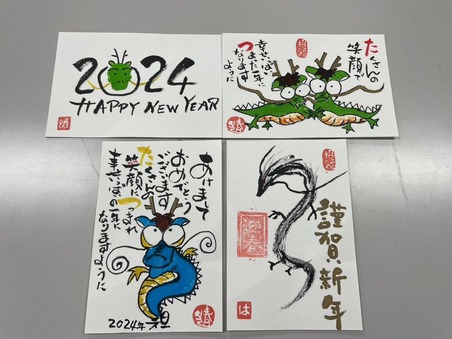 2024
HAPPY NEW YEAR
たくさんの
笑顔で
幸せいっぱい
つまった一年に
なりますように
あけまして
おめでとう
ございます
たくさんの
笑顔につつまれ
幸せいっぱいの一年に
なりますように
2024年 元旦
謹賀新年
は